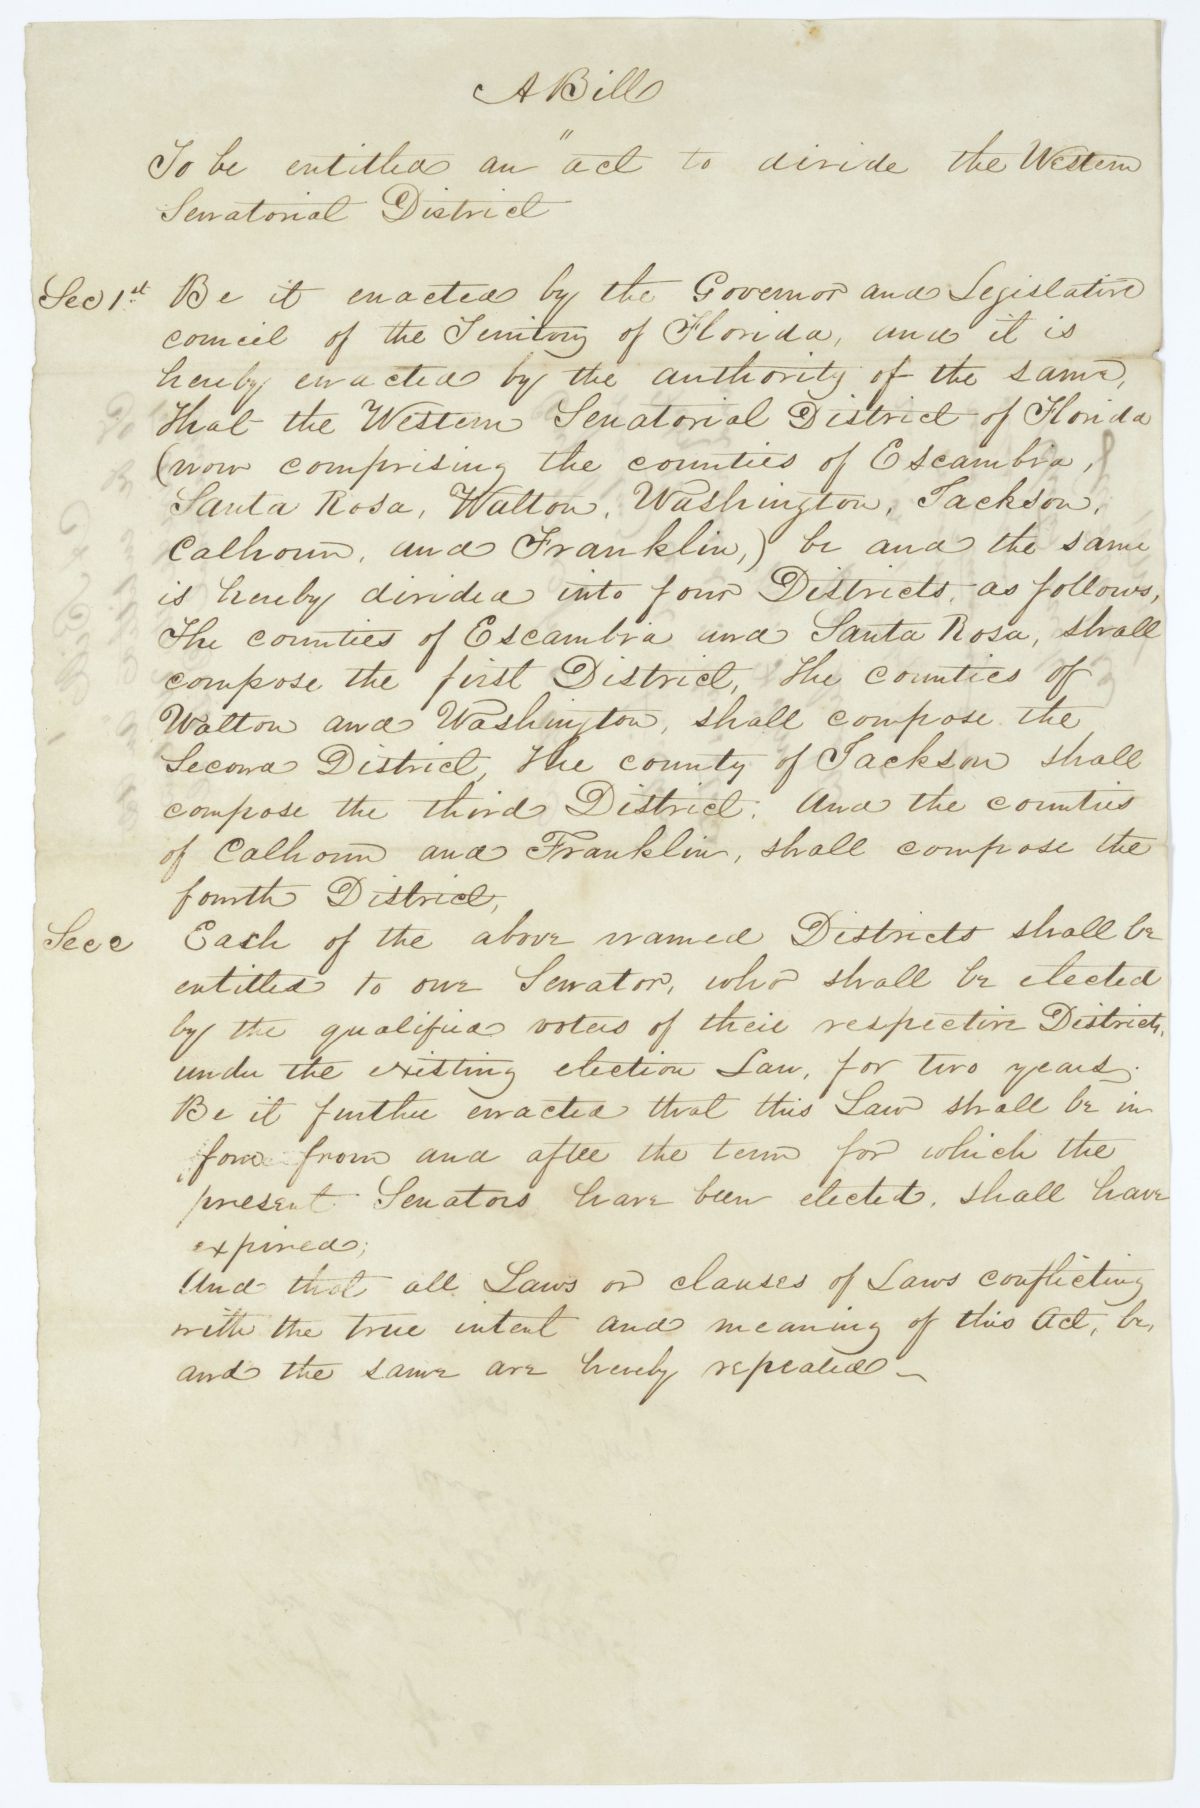 A Bill
To be entitled an "act to divide the Western
Senatorial District
Sec 1st Be it enacted by the Governor and Legislative
council of the Territory of Florida, and it is
hereby enacted by the authority of the same,
that the Western Senatorial District of Florida
(now comprising the counties of Escambia,
Santa Rosa, Walton, Washington, Jackson,
Calhoun, and Franklin,) be and the same
is hereby divided into four Districts, as follows,
The counties of Escambia and Santa Rosa, shall
compose the first District, the counties of
Walton and Washington, shall compose the
Second District, the county of Jackson shall
compose the third District. And the counties
of Calhoun and Franklin, shall compose the
fourth District,
Sec Each of the above named Districts shall be
entitled to one Senator, who shall be elected
by the qualified voters of their respective Districts,
under the existing election Law, for two years.
Be it further enacted that this Law shall be in
force from and after the term for which the
present Senators have been elected, shall have
expired;
And that all Laws or clauses of Laws conflicting
with the true intent and meaning of this Act, be,
and the same are hereby repealed